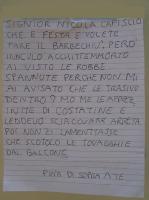 SIGNIOR NICOLA CAPISCIO
CHE È FESTA E VOLETE
FARE IL BARBECHIÙ, PERÒ
INVECE
AI VISTO LE ROBBE
SPANNUTE PERCHE NON MI
AI AVISATO CHE LE TRASIVO
DENTRO? MO ME
TUTTE DI COSTATINE E
LEDDEVO SCIACQUARE ARRETA
POI NON TI LAMENTASSE
CHE SCOTOLO LE TOVAGGHIE
DAL BALCONE
DI SOPRA A TE